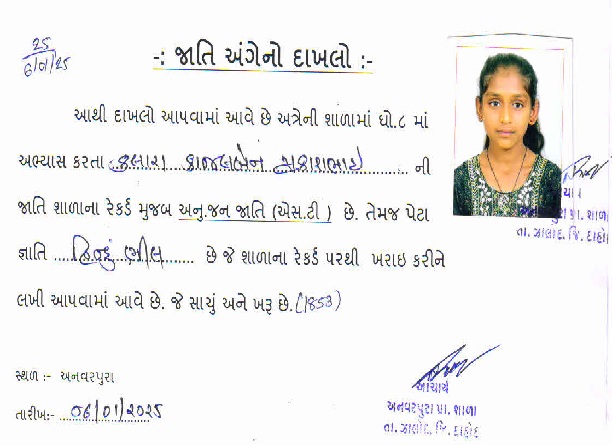 25
6/1/25
-: જાતિ અંગેનો દાખલો :-
આથી દાખલો આપવામાં આવે છે અત્રેની શાળામાં ધો.૮ માં
અભ્યાસ કરતા કલારા કાજલબેન ની
જાતિ શાળાના રેકર્ડ મુજબ અનુ.જન જાતિ (એસ.ટી ) છે. તેમજ પેટા
જ્ઞાતિ હિન્દુ ભીલ છે જે શાળાના રેકર્ડ પરથી ખરાઇ કરીને
લખી આપવામાં આવે છે. જે સાચું અને ખરૂ છે.(1853)
સ્થળ :- અનવરપુરા
તારીખ:- 06/01/2025
પુરા પ્રા. શાળા
તા. ઝાલોદ. જિ. દાહોદ
આચાર્ય
અનવરપુરા પ્રા. શાળા
તા. ઝાલોદ. જિ. દાહોદ